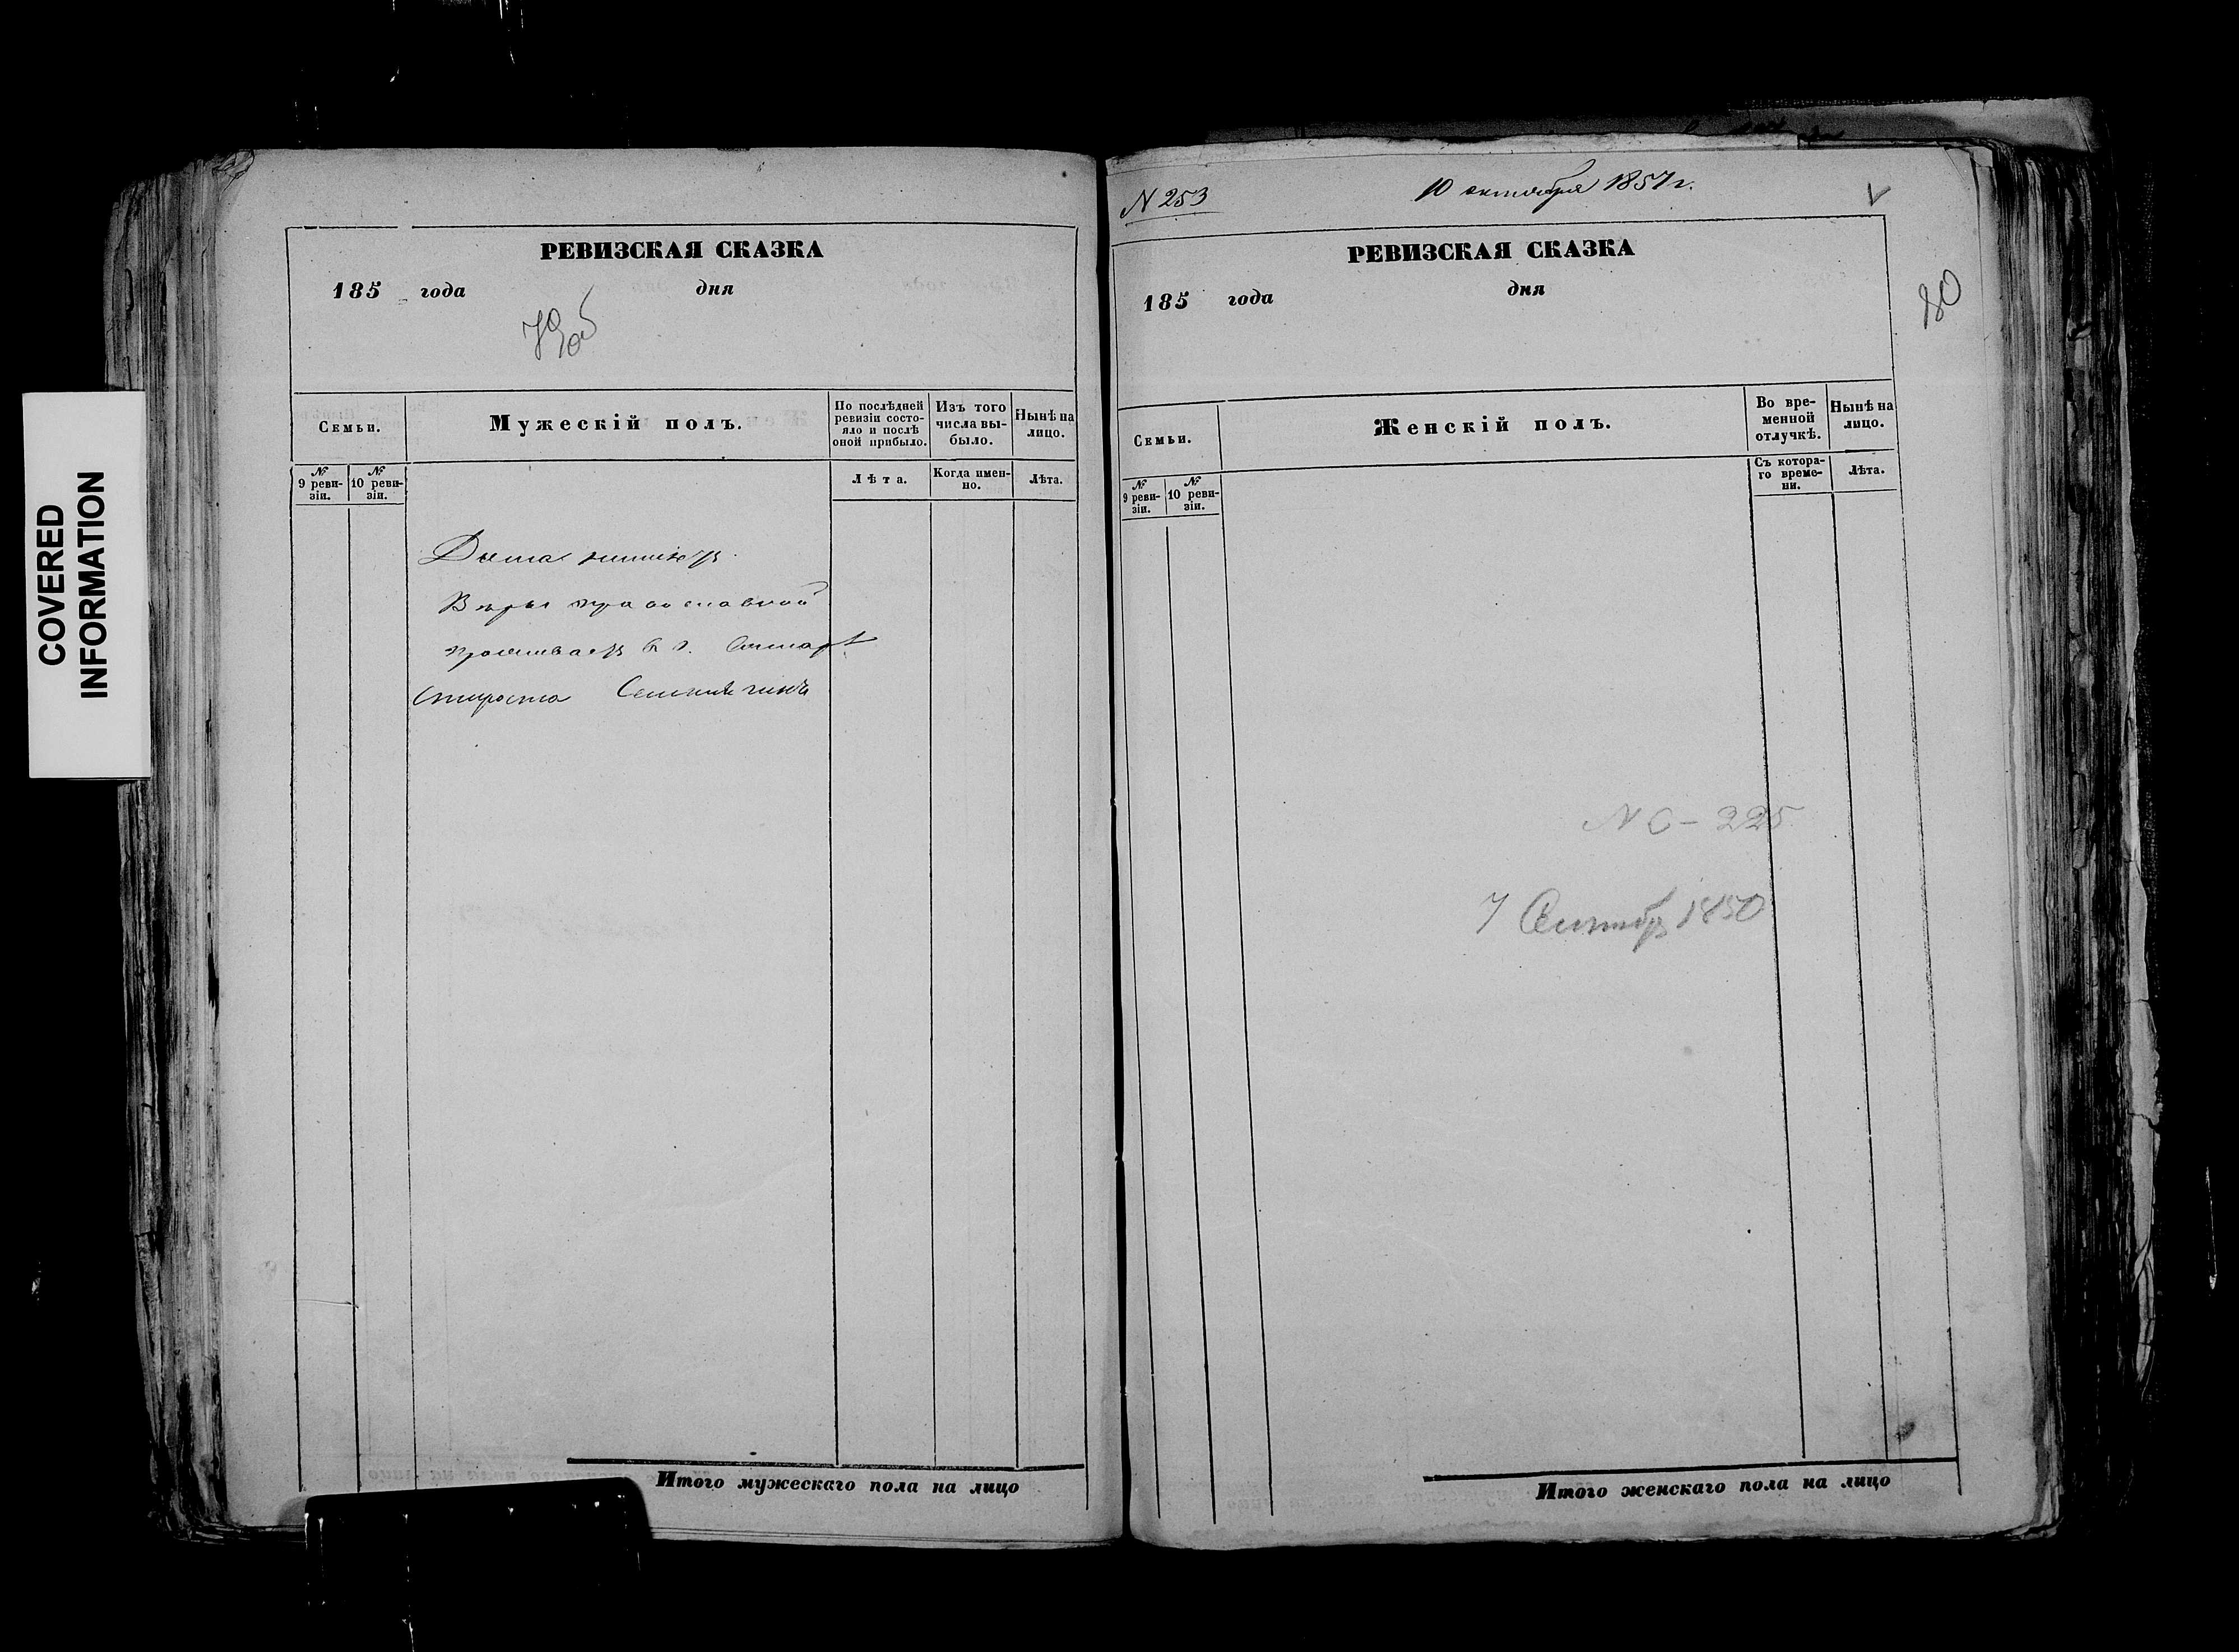 COVERED
INFORMATION
РЕВИЗСКАЯ СКАЗКА
185 года дня
79об
Семьи.
Мужескій полъ.
По послѣдней ревизіи состояло и послѣ оной прибыло.
Изъ того числа выбыло.
Нынѣ на лицо.
№ 9 ревизіи.
№ 10 ревизіи.
Лѣта.
Когда именно.
Лѣта.
Дома
Вѣры православной
проживаетъ в г.
Староста
Итого мужескаго пола на лицо
N 253
10 октября 1857 г.
РЕВИЗСКАЯ СКАЗКА
185 года дня
80
Семьи.
Женскій полъ.
Во временной отлучкѣ.
Нынѣ на лицо.
№ 9 ревизіи.
№ 10 ревизіи.
Съ котораго времени.
Лѣта.
N С - 225
7 Сентябр 1850
Итого женскаго пола на лицо